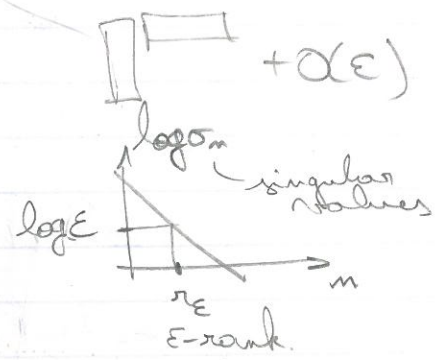 + O(ε)
log σₙ
singular
values
log ε
n
r_ε
ε-rank.